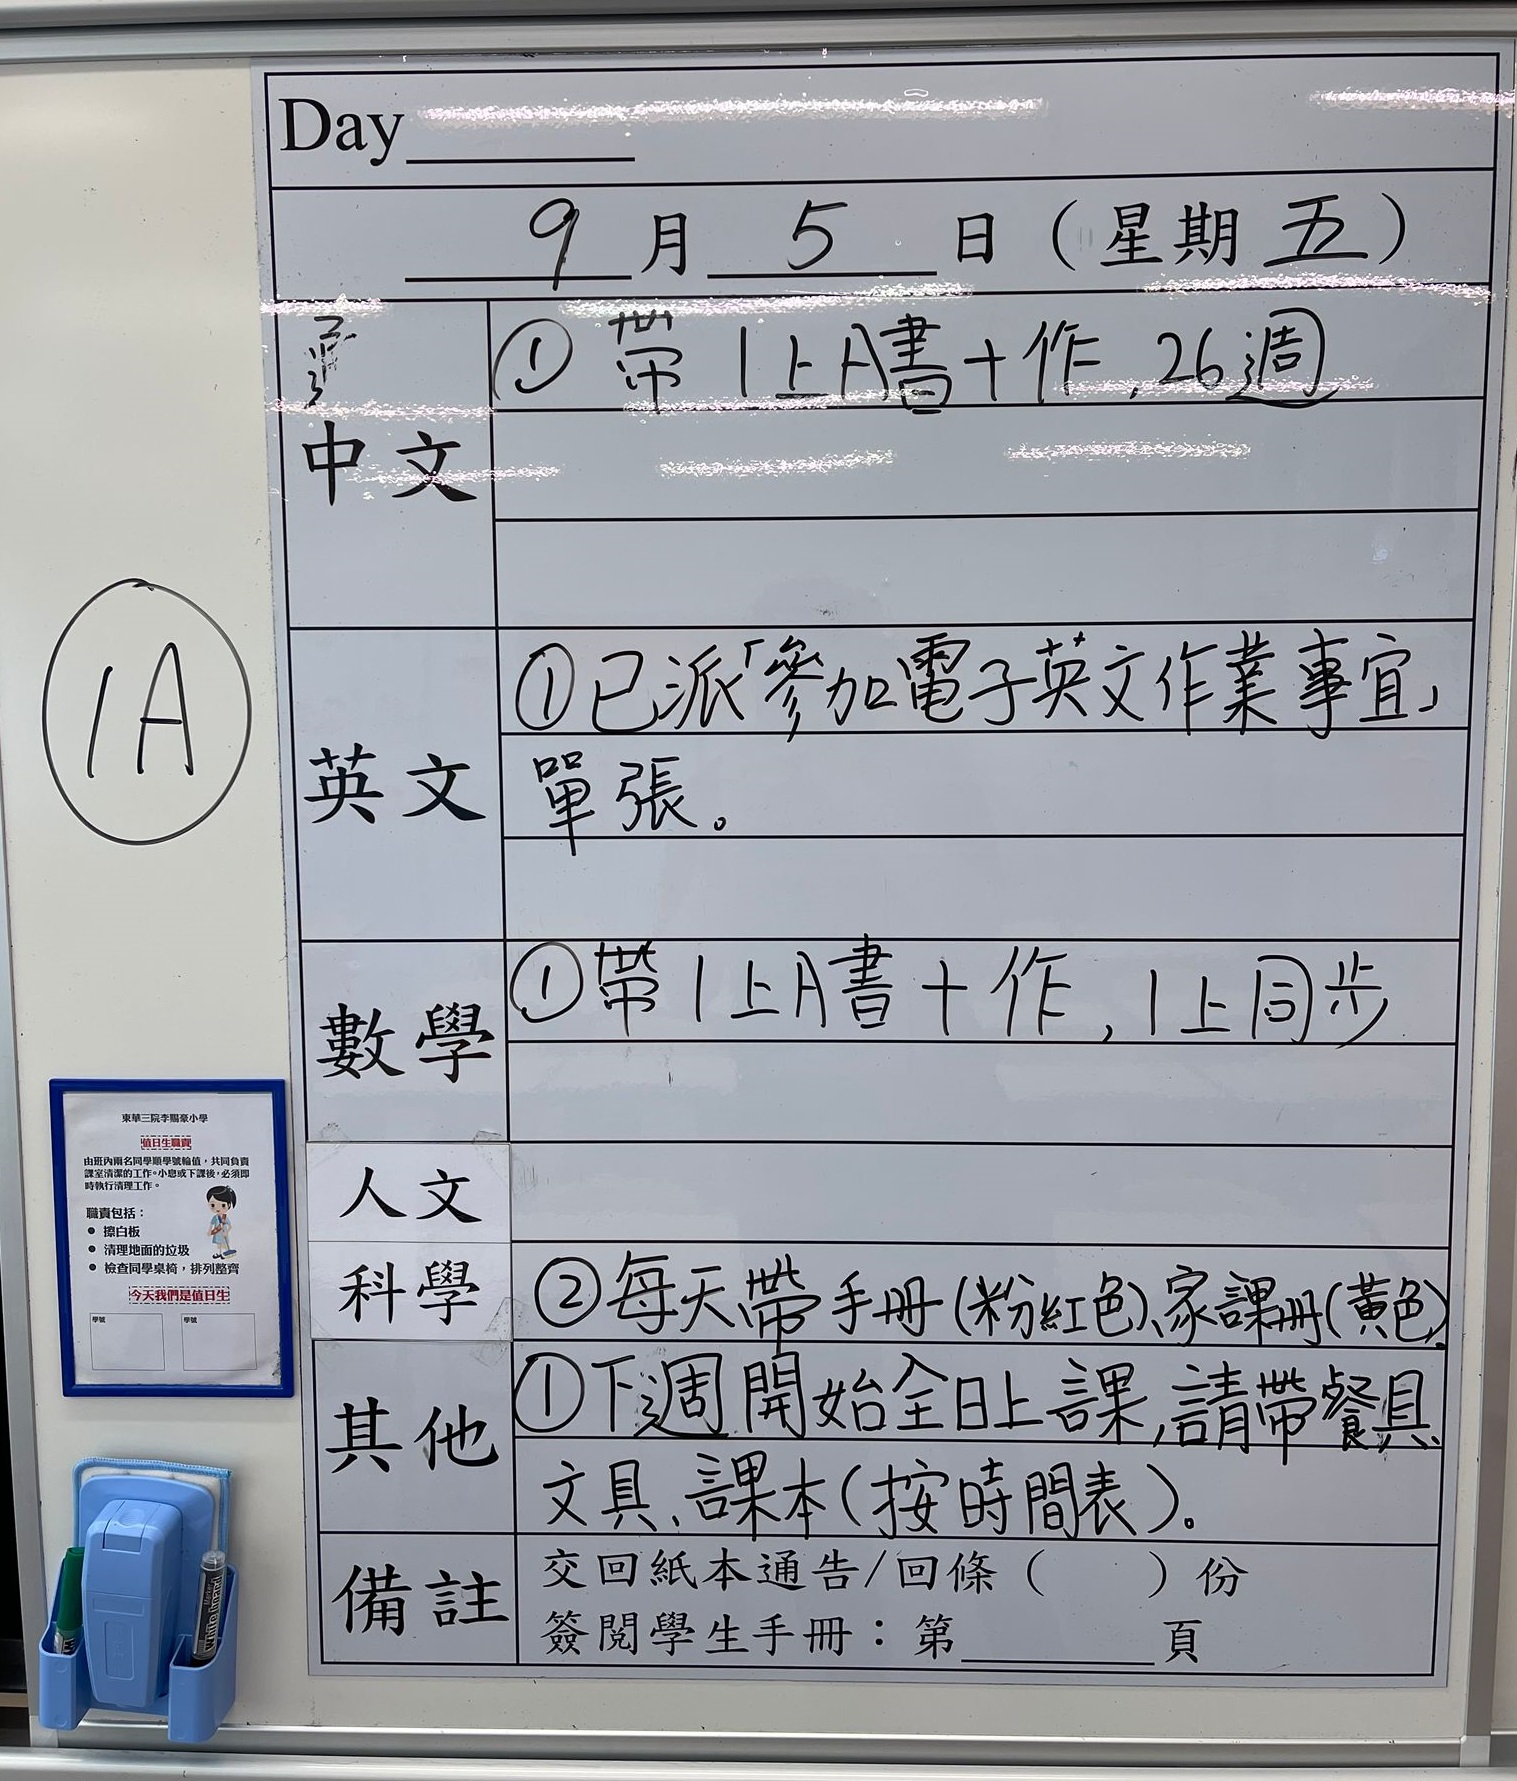 Day
9月5日(星期五)
中文
①帶1上A書+作,26週
1A
英文
①已派「參加電子英文作業事宜」
單張。
數學
①帶1上A書+作,1上同步
人文
科學
②每天帶手冊(粉紅色)、家課冊(黃色)
其他
①下週開始全日上課,請帶餐具、
文具、課本(按時間表)。
備註
交回紙本通告/回條( )份
簽閱學生手冊:第______頁
東華三院李賜豪小學
值日生職責
由班內兩名同學順學號輪值,共同負責
課室清潔的工作。小息或下課後,必須即
時執行清理工作。
職責包括:
• 擦白板
• 清理地面的垃圾
• 檢查同學桌椅,排列整齊
今天我們是值日生
學號 學號
White board